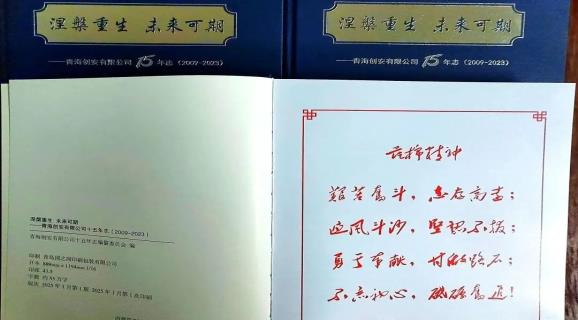 涅槃重生 未来可期
——青海创安有限公司15年志(2009-2023)
涅槃重生 未来可期
——青海创安有限公司15年志(2009-2023)
涅槃重生 未来可期
——青海创安有限公司十五年志(2009-2023)
青海创安有限公司十五年志编纂委员会 编
开本 889mm×1194mm 1/16
印张 43.5
版次 2025年1月第1版 2025年1月第1次印刷
精神
艰苦奋斗,志存高远;
追风斗沙,坚韧不拔;
勇于奉献,甘做路石;
不忘初心,砥砺奋进!